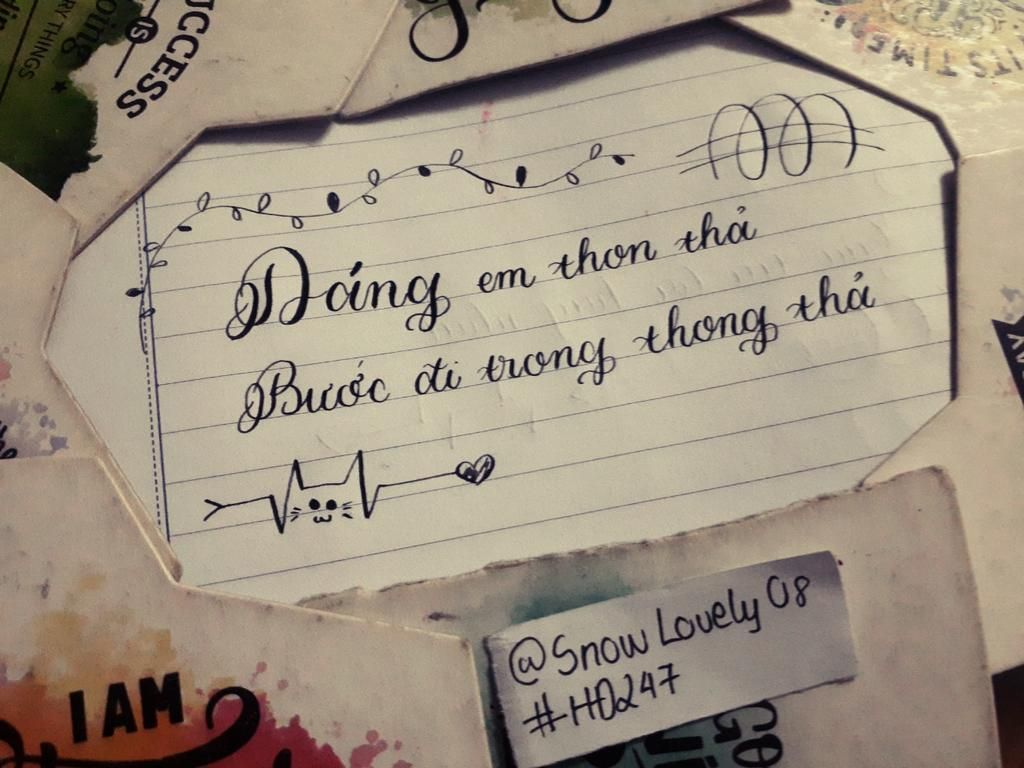 SUCCESS
IS
RY THINGS
ITS TIME
Dáng em thon thả
Bước đi trong thong thả
@SnowLovely08
#HD247
I AM